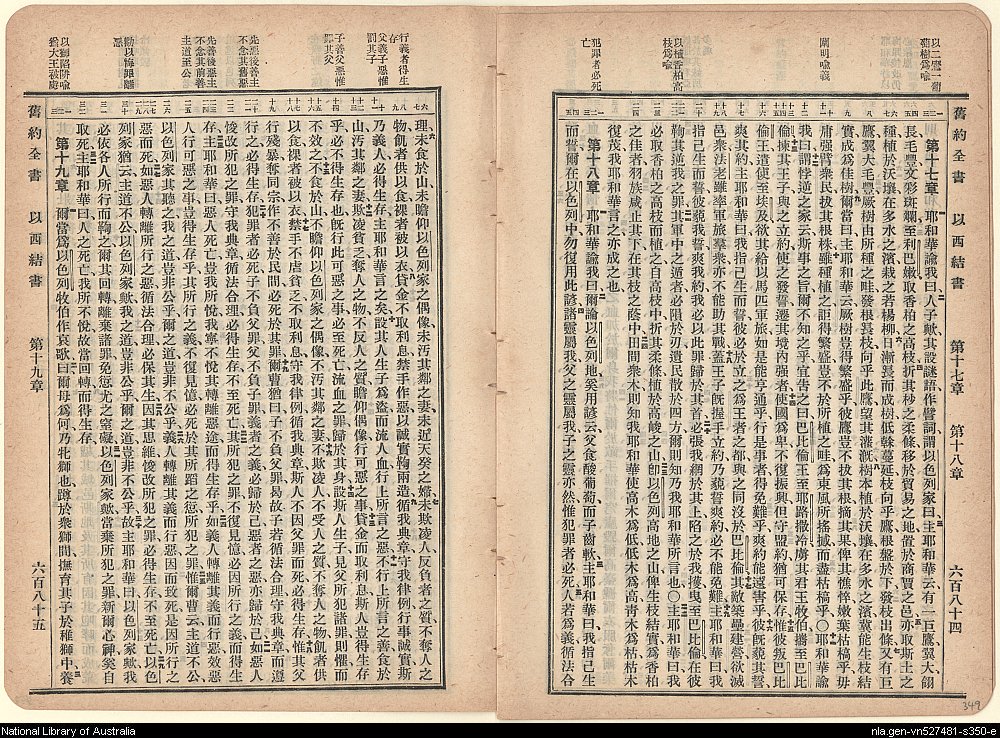 以二鷹一葡萄樹為喻
闡明喻義
以植香柏高枝為喻
犯罪者必死亡
舊約全書 以西結書 第十七章 第十八章 六百八十四
第十七章 耶和華諭我曰人子歟其設謎語作譬詞謂以色列家曰主耶和華云有一巨鷹翼大翮
長毛豐文彩斑斕至利巴嫩取香柏之高枝折其杪之柔條移於貿易之地置於商賈之邑亦取斯土之
種植於沃壤在多水之濱栽之若楊柳日漸長而成樹低幹蔓延枝向乎鷹根盤於下發枝出條又有巨
鷹翼大毛豐厥樹由所種之畦發根長枝向乎此鷹望其灌漑樹本植於沃壤在多水之濱冀能生枝結
實成為佳樹爾當曰主耶和華云厥樹豈得繁盛乎彼鷹豈不拔其根摘其果俾其憔悴嫩葉枯槁乎毋
庸强臂衆民拔其根株雖種植之詎得繁盛豈不於所植之畦為東風所搖撼而盡枯槁乎○耶和華諭
我曰謂悖逆之家云斯事之旨爾不知之乎宜告之曰巴比倫王至耶路撒冷虜其君王牧伯攜至巴比
倫擄其王子與之立約使之發誓遷其境內强者使國為卑不復振興但守盟約猶可保存惟彼叛巴比
倫王遣使至埃及欲其給以馬匹軍旅如是能亨通乎行是事者得免難乎爽約能遠害乎彼既藐其誓
爽其約主耶和華曰我指己生而誓彼必於立之為王者之都與之同沒於巴比倫其敵築壘建營欲滅
邑衆法老雖率軍旅羣衆亦不能助其戰蓋王子既握手立約乃藐誓爽約必不能免難主耶和華曰我
指己生而誓彼藐我誓爽我約我必以此罪歸於其首必張我網於其上陷之於我罟曳至巴比倫在彼
鞫其逆我之罪其軍中之遁者必隕於刃遺民散於四方爾則知乃我耶和華所言也○主耶和華曰我
必取香柏之高枝而植之自高枝中折其柔條植於高峻之山卽以色列高地之山俾生枝結實為香柏
之佳者羽族咸止其下在其枝之蔭中田間衆木則知我耶和華使高木為低低木為高靑木為枯枯木
復茂我耶和華言之亦成之也
第十八章 耶和華諭我曰爾論以色列地奚用諺云父食酸葡萄而子齒軟主耶和華曰我指己生
而誓爾在以色列中勿復用此諺諸靈屬我父之靈屬我子之靈亦然惟犯罪者必死人若為義循法合
行義者得生
父義子惡惟罰其子
子善父惡惟罪其父
先惡後善主不念其舊惡
先善後惡主不念其前善
主道至公
勸以悔罪離惡
以獅陷阱喻猶大王被虜
理未食於山未瞻仰以色列家之偶像未汚其鄰之妻未近天癸之婦未欺凌人反負者之質不奪人之
物飢者供以食裸者被以衣貸金不取利息禁手作惡以誠實鞫兩造循我典章守我律例行事誠實斯
乃義人必得生存主耶和華言之矣設其人生子為盜而流人血行上所言之惡不行上所言之善食於
山汚其鄰之妻欺凌貧乏奪人之物不反人之質瞻仰偶像行可惡之事貸金而取利息斯人生子見父所犯諸罪則懼而
乎必不得生存也既行此可惡之事必至死亡流血之罪歸於其身設斯人生子見父所犯諸罪則懼而
不效之不食於山不瞻仰以色列家之偶像不汚其鄰之妻不欺凌人不受人之質不奪人之物飢者供
以食裸者被以衣禁手不虐貧乏不取利息守我律例循我典章斯人不因父罪而死必得生存惟其父
行殘暴奪同宗作不善於民間必死於其罪爾曹猶曰子不負父罪曷故子若循法合理守我典章而遵
行之必得生存犯罪者必死子不負父罪父不負子罪義者之義必歸於己惡者之惡亦歸於己如惡人
悛改所犯之罪守我典章循法合理必得生存不至死亡其所犯之罪不復見憶必因所行之義而得生
存主耶和華曰惡人死亡豈我所悅我寧不悅其轉離惡途而得生存乎如義人轉離其義而行惡效惡
人行可惡之事豈得生存乎其所行之義不復見憶必死於其所蹈之愆所犯之罪惟爾曹云主道不公
以色列家其聽之我之道豈非公乎爾之道豈非不公乎義人轉離其義而行惡因而致死是因所行之
惡而死如惡人轉離所行之惡循法合理必保其生因其思維悛改所犯之罪必得生存不至死亡以色
列家猶云主道不公以色列家歟我之道豈非公乎爾之道豈非不公乎故主耶和華曰以色列家歟我
必依各人所行而鞫之爾其回轉離棄諸罪免愆尤之窒礙以色列家歟當棄所犯之罪新爾心神奚自
取死主耶和華曰人之死亡我所不悅故當回轉而得生存
第十九章 爾當為以色列牧伯作哀歌曰爾母為何乃牝獅也蹲於衆獅間撫育其子於稚獅中養
舊約全書 以西結書 第十九章 六百八十五
349
National Library of Australia
nla.gen-vn527481-s350-e